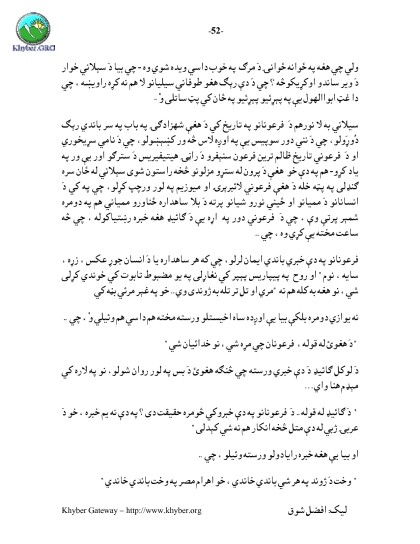 -52-
Khyber.ORG
ولي چي هغه په خوانه خوانۍ دَ مرګ په خوب داسي ويده شوي وه - چي بيا دَ سيلاني خوار
دَ وير ساندو او کړيکو څه؟ چي دَ دې رېګ هغو طوفاني سيليانو لا هم نه کړه راويښه ، چي
دا غټ ابوالهول يې په پېړيو پېړيو په ځان کي پټ ساتلی وُ -
سيلاني په لا نور هم دَ فرعونانو په تاريخ کي دَ هغې شهزادګۍ په باب په سر باندي رېګ
دوړولو، چي دَ نني دور سوپيس يې په اوږد لاس څه ور کښېښو لو، چي دَ نامي سړيخوري
او دَ فرعوني تاريخ ظالم ترين فرعون سنيفرو دَ راڼۍ هيتيفيريس دَ سترګو اور يې ور په
ياد کړو - هم په دې خو هغې دَ پرون له سترو منزلونو څخه راستون شوی سيلاني له ځان سره
ګنډلی په پټه خله دَ هغې فرعوني لائبرېرۍ او ميوزيم په لور ورچپ کړلو ، چي په کي دَ
انسانانو دَ مميانو او ځيني نورو شيانو پرته دَ بلا ساهداره ځناورو مميانی هم په دومره
شمېر پرتې وې ، چي دَ فرعوني دور په اړه يې دَ ګائيډ هغه خبره رښتيا کوله ، چي څه
ساعت مخته يې کړي وه ، چي ..
فرعونانو په دې خبري باندي ايمان لرلو ، چي که هر ساهداره يا دَ انسان جوړ عکس ، زړه ،
سايه ، نوم " او روح په پيپاريس پېپر کي نغاړلی په يو مضبوط تابوت کي خوندي کړلی
شي ، نو هغه به کله هم نه " مري او تل تر تله به ژوندی وي .. خو په غېر مرئي بڼه کي
نه يوازي دومره بلکې بيا يې اوږده ساه اخيستلو ورسته مخته هم داسي هم وئيلي وُ ، چي ..
" دَ هغوئ له قوله ، فرعونان چي مړه شي ، نو خدائيان شي "
دَ لوکل ګائيډ دَ دې خبري ورسته چي څنګه هغوئ دَ بس په لور روان شولو ، نو په لاره کي
مېډم هنا واي ...
" دَ ګائيډ له قوله .. دَ فرعونانو په دې خبرو کي څومره حقيقت دی ؟ په دې نه يم خبره ، خو دَ
عربۍ ژبي له دې متل څخه انکار هم نه شي کېدلی "
او بيا يې هغه خبره را يادولو ورسته وئيلو ، چي ..
" وخت دَ ژوند په هر شي باندي خاندي ، خو اهرام مصر په وخت باندي خاندي "
ليک: افضل شوق
Khyber Gateway – http://www.khyber.org